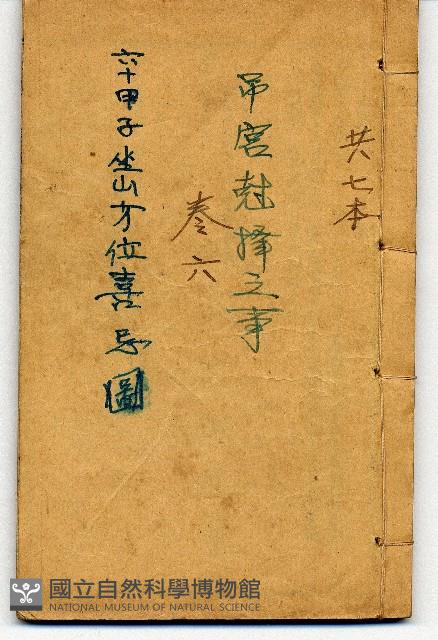 共七本
吊宮尅擇之事
卷六
六十甲子坐山方位喜忌圖
國立自然科學博物館
NATIONAL MUSEUM OF NATURAL SCIENCE